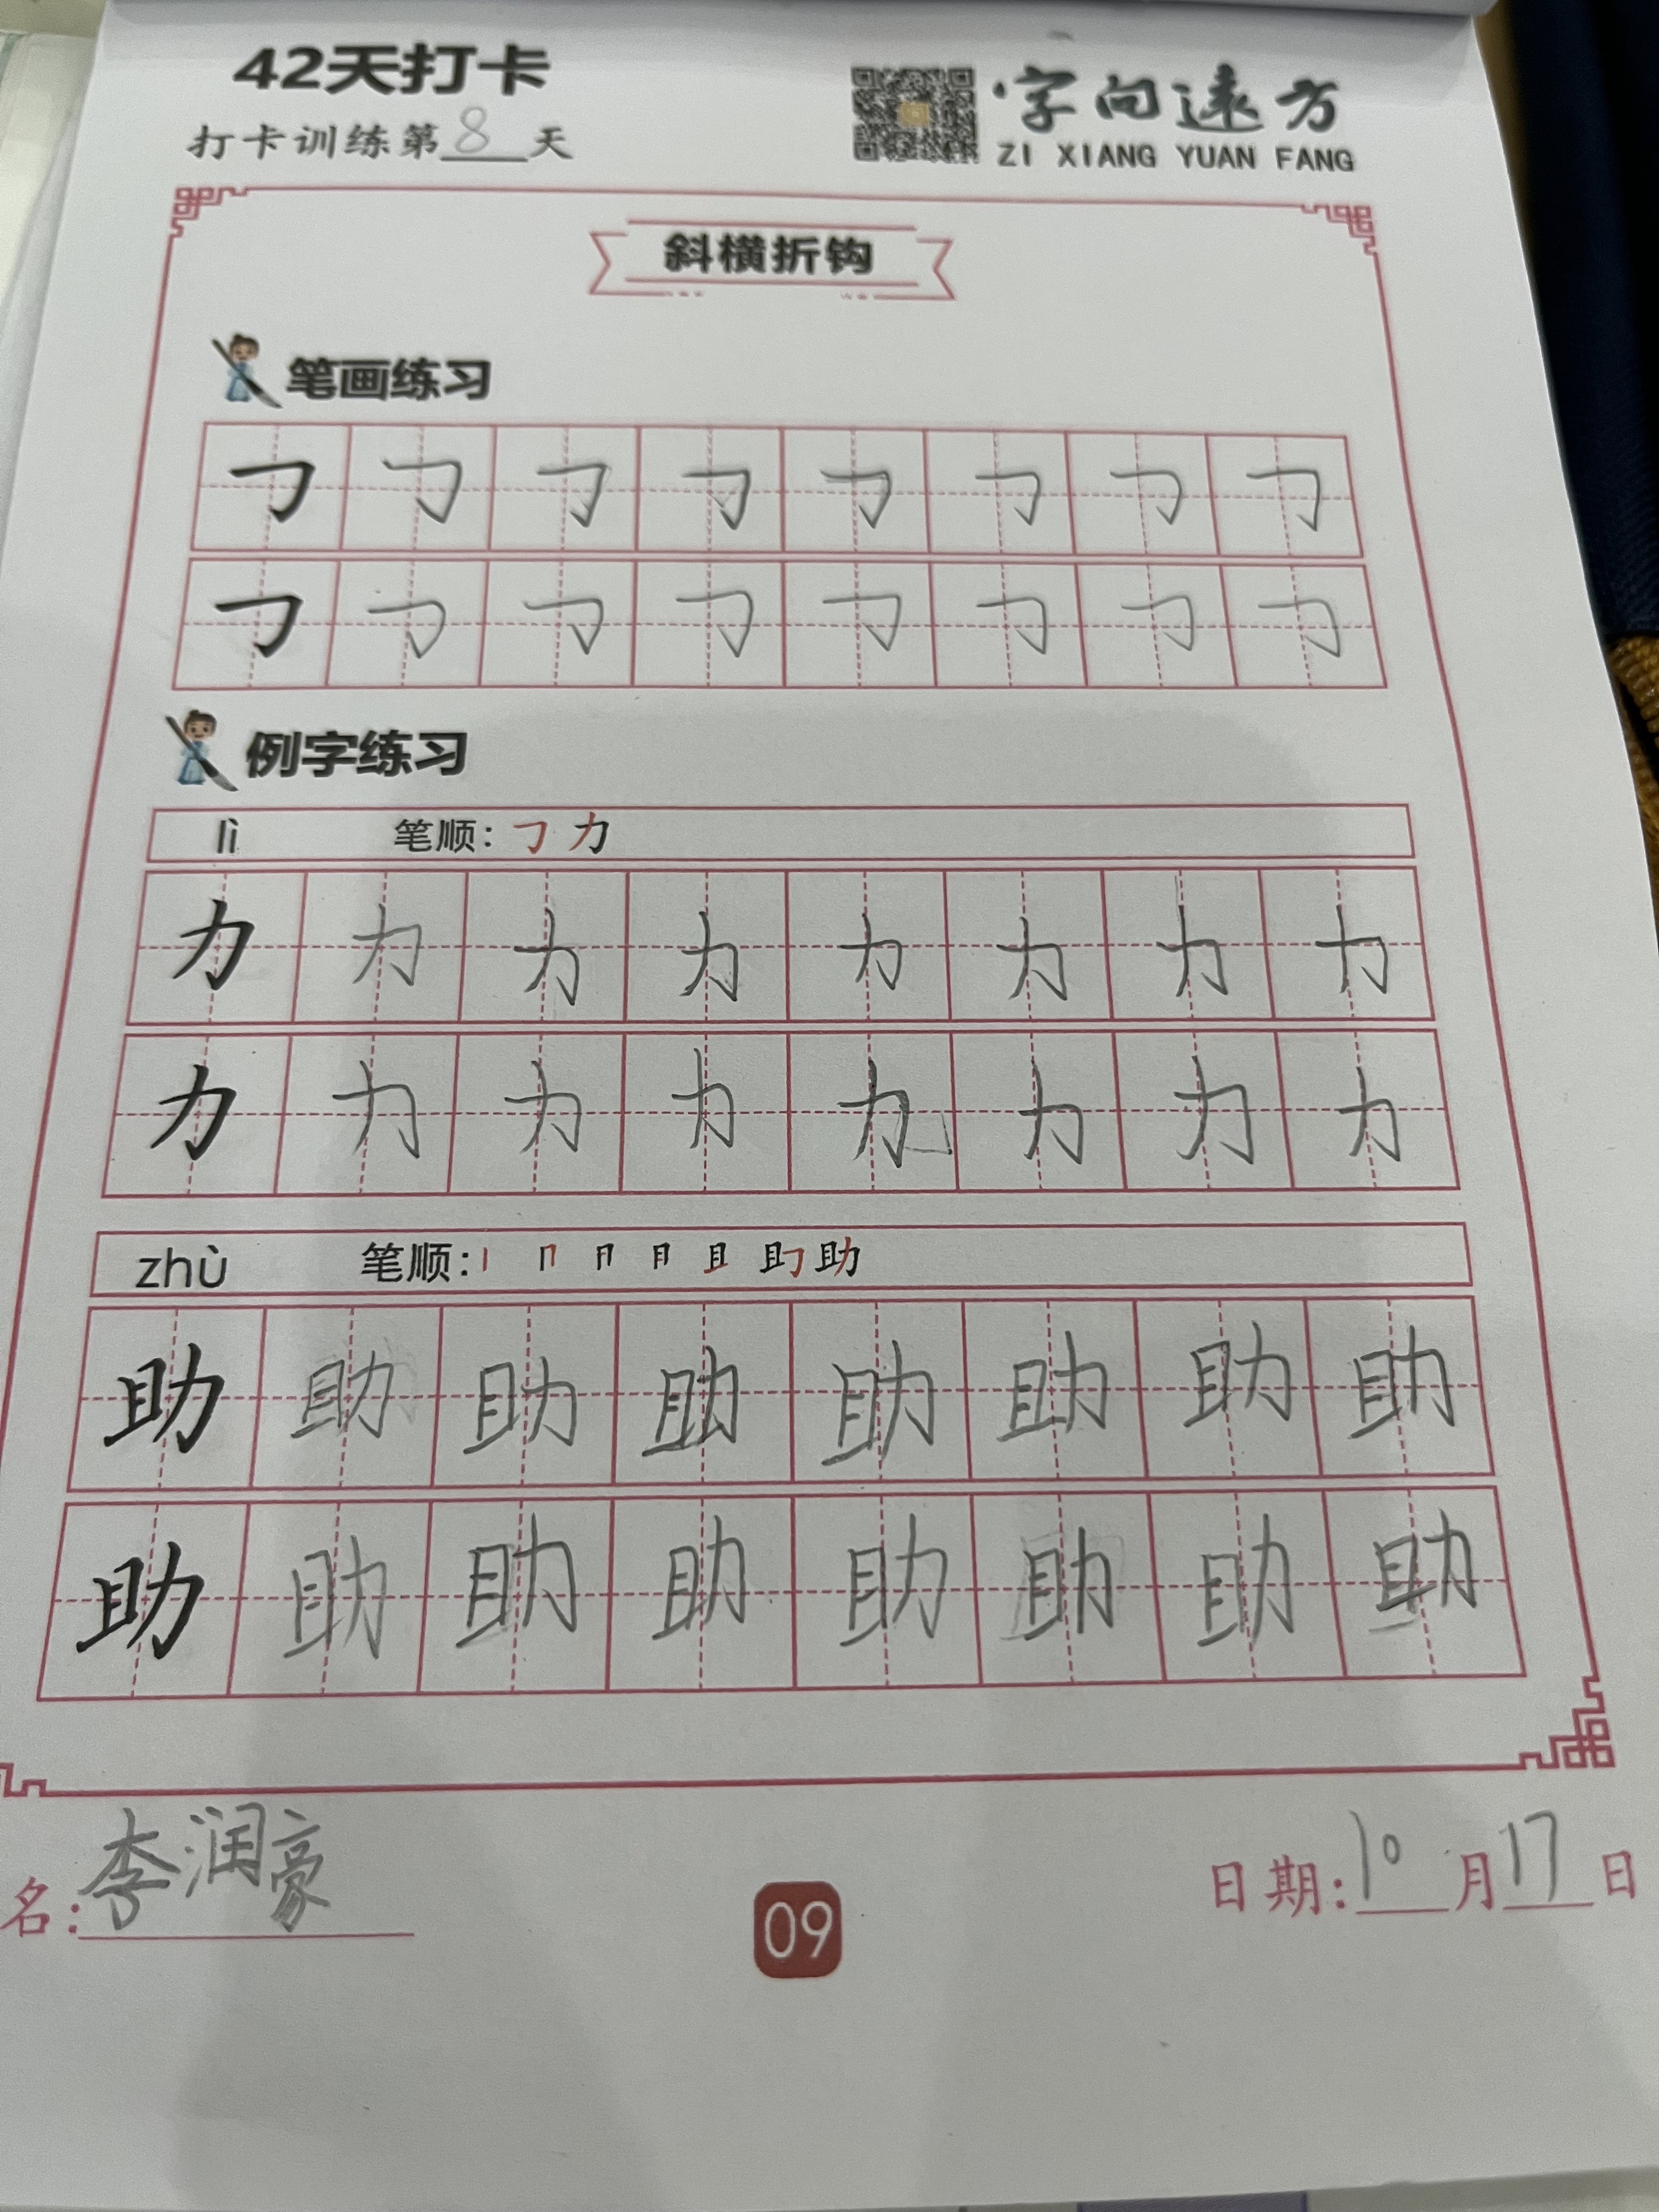 42天打卡
打卡训练第8天
字向远方
ZI XIANG YUAN FANG
斜横折钩
笔画练习
㇆ ㇆ ㇆ ㇆ ㇆ ㇆ ㇆ ㇆
㇆ ㇆ ㇆ ㇆ ㇆ ㇆ ㇆ ㇆
例字练习
lì 笔顺: ㇆ 力
力 力 力 力 力 力 力 力
力 力 力 力 力 力 力 力
zhù 笔顺: 丨 冂 月 月 且 助
助 助 助 助 助 助 助 助
助 助 助 助 助 助 助 助
名: 李润豪
09
日期: 10月17日